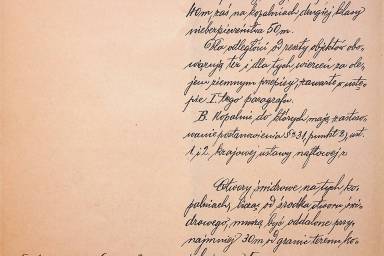 40m, zaś na kopalniach drugiej klasy
niebezpieczeństwa 50m.
Dla odległości od reszty objektów obo-
wiązują też i dla tych, wierceń za ole-
jem ziemnym przepisy, zawarte w ustę-
pie I tego paragrafu.
B. Kopalnie, do których mają zastoso-
wanie postanowienia § 31, punkt 2, ust.
1 i 2. krajowej ustawy naftowej z
Otwory świdrowe na tych ko-
palniach, licząc od środka otworu świ-
drowego, muszą być oddalone przy-
najmniej 30m od granic terenu ko-